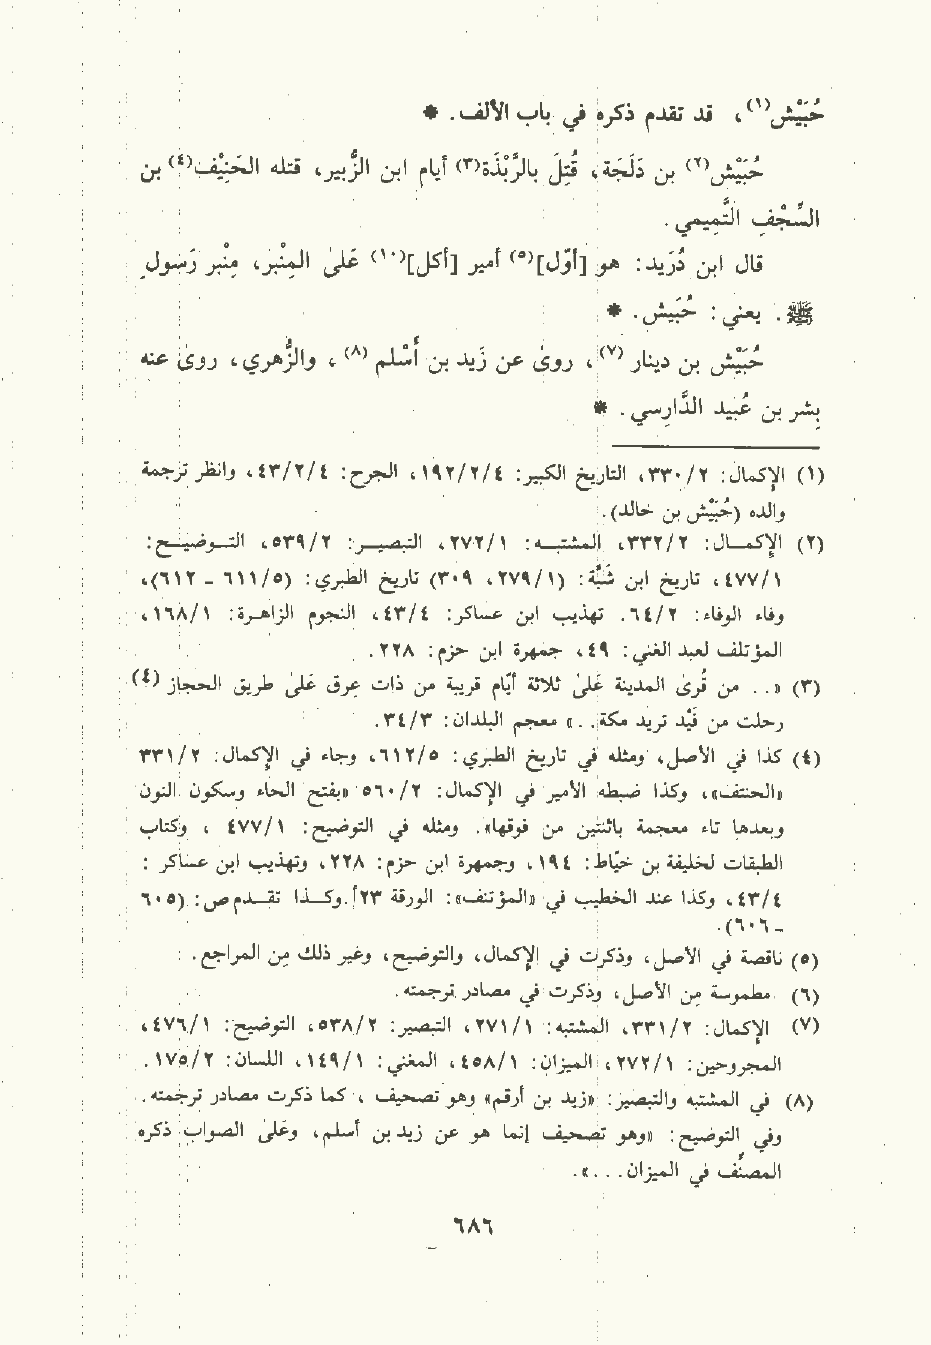 حُبَيْش(١)، قد تقدم ذكره في باب الألف. *
حُبَيْش(٢) بن دَلَجَة، قُتِلَ بالرَّبْذَة(٣) أيام ابن الزُّبير، قتله الحَنِيْف(٤) بن
السِّجْفِ التَّمِيمي.
قال ابن دُرَيد: هو [أوّل](٥) أمير [أكل](١٠) عَلىٰ المِنْبرِ، مِنْبر رَسُولِ
ﷺ. يعني: حُبَيش. *
حُبَيْش بن دينار (٧)، روىٰ عن زَيد بن أَسْلم (٨)، والزُّهري، روىٰ عنه
بِشر بن عُبيد الدَّارِسي. *
(١) الإكمال: ٣٣٠/٢، التاريخ الكبير: ١٩٢/٢/٤، الجرح: ٤٣/٢/٤، وانظر ترجمة
والده (حُبَيْش بن خالد).
(٢) الإكمال: ٣٣٢/٢، المشتبه: ٢٧٢/١، التبصير: ٥٣٩/٢، التوضيح:
٤٧٧/١، تاريخ ابن شَبَّة: (٢٧٩/١، ٣٠٩) تاريخ الطبري: (٦١١/٥ - ٦١٢)،
وفاء الوفاء: ٦٤/٢. تهذيب ابن عساكر: ٤٣/٤، النجوم الزاهرة: ١٦٨/١،
المؤتلف لعبد الغني: ٤٩، جمهرة ابن حزم: ٢٢٨.
(٣) «.. من قُرىٰ المدينة عَلىٰ ثلاثة أيّام قريبة من ذات عِرق عَلىٰ طريق الحجاز (٤)
رحلت من فَيْد تريد مكة...» معجم البلدان: ٣٤/٣.
(٤) كذا في الأصل، ومثله في تاريخ الطبري: ٦١٢/٥، وجاء في الإكمال: ٣٣١/٢
«الحنتف»، وكذا ضبطه الأمير في الإكمال: ٥٦٠/٢ «بفتح الحاء وسكون النون
وبعدها تاء معجمة باثنتين من فوقها». ومثله في التوضيح: ٤٧٧/١ ، وكتاب
الطبقات لخليفة بن خيّاط: ١٩٤، وجمهرة ابن حزم: ٢٢٨، وتهذيب ابن عساكر :
٤٣/٤، وكذا عند الخطيب في «المؤتنف»: الورقة ٢٣أ. وكذا تقدم ص: (٦٠٥
- ٦٠٦).
(٥) ناقصة في الأصل، وذكرت في الإكمال، والتوضيح، وغير ذلك مِن المراجع.
(٦) مطموسة مِن الأصل، وذكرت في مصادر ترجمته.
(٧) الإكمال: ٣٣١/٢، المشتبه: ٢٧١/١، التبصير: ٥٣٨/٢، التوضيح: ٤٧٦/١،
المجروحين: ٢٧٢/١، الميزان: ٤٥٨/١، المغني: ١٤٩/١، اللسان: ١٧٥/٢.
(٨) في المشتبه والتبصير: «زيد بن أرقم» وهو تصحيف ، كما ذكرت مصادر ترجمته.
وفي التوضيح: «وهو تصحيف إنما هو عن زيد بن أسلم، وعَلىٰ الصواب ذكره
المصنِّف في الميزان...».
٦٨٦